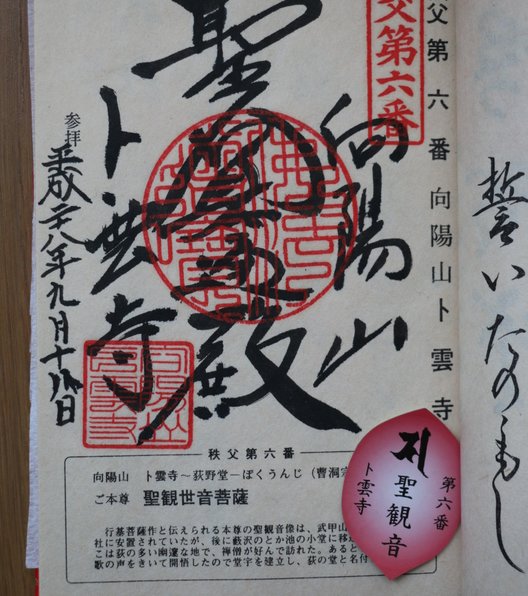 誓いたのもし
父第六番 向陽山卜雲寺
父第六番
向陽山
聖
殿
卜雲寺
参拝
平成二八年九月十八日
秩父第六番
向陽山 卜雲寺～荻野堂ーぼくうんじ（曹洞宗
ご本尊 聖観世音菩薩
行基菩薩作と伝えられる本尊の聖観音像は、武甲山
社に安置されていたが、後に藪沢のとか池の小堂に移
こは荻の多い幽邃な地で、禅僧が好んで訪れた。あると
歌の声をきいて開悟したので堂宇を建立し、荻の堂と名付
第六番
聖観音
卜雲寺